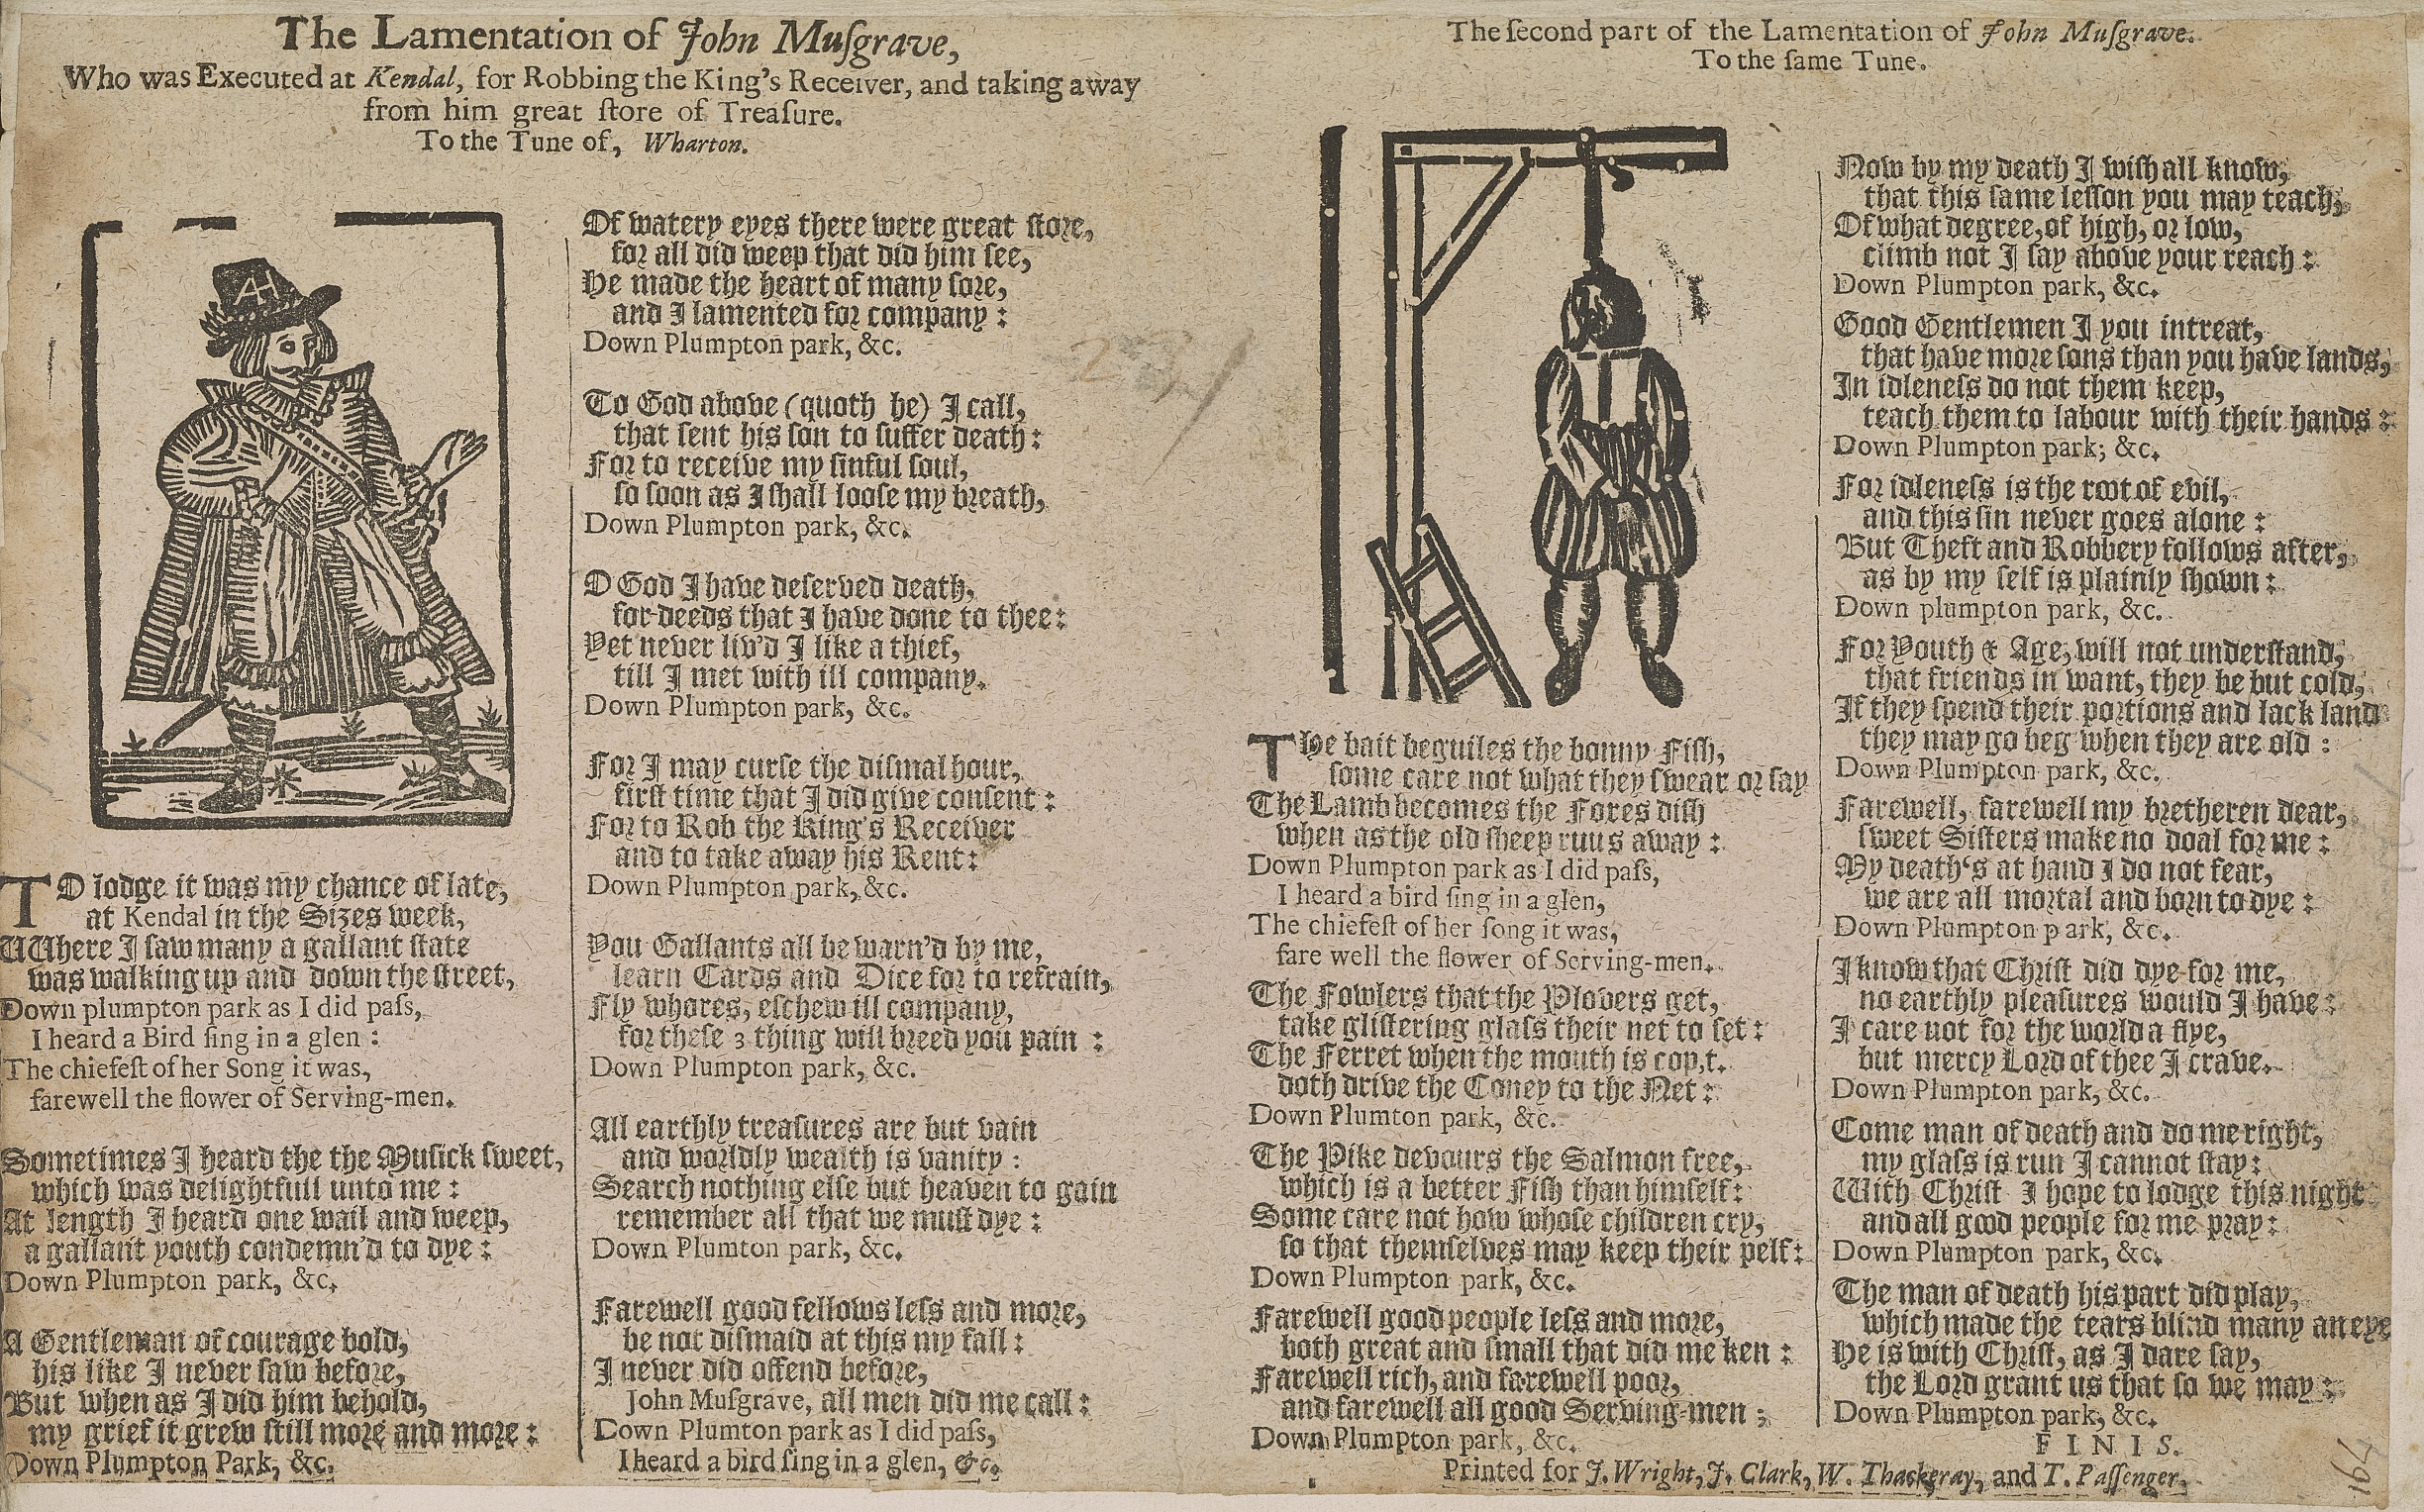 The Lamentation of John Muſgrave,
Who was Executed at Kendal, for Robbing the King's Receiver, and taking away
from him great ſtore of Treaſure.
To the Tune of, Wharton.
AH
TO lodge it was my chance of late,
at Kendal in the Sizes week,
VVhere I ſaw many a gallant ſtate
was walking up and down the ſtreet,
Down plumpton park as I did paſs,
I heard a Bird ſing in a glen :
The chiefeſt of her Song it was,
farewell the flower of Serving-men.
Sometimes I heard the the Muſick ſweet,
which was delightfull unto me :
At length I heard one wail and weep,
a gallant youth condemn'd to dye :
Down Plumpton park, &c.
A Gentleman of courage bold,
his like I never ſaw before,
But when as I did him behold,
my grief it grew ſtill more and more :
Down Plumpton Park, &c.
Of watery eyes there were great ſtore,
for all did weep that did him ſee,
He made the heart of many ſore,
and I lamented for company :
Down Plumpton park, &c.
To God above (quoth he) I call,
that ſent his ſon to ſuffer death :
For to receive my ſinful ſoul,
ſo ſoon as I ſhall looſe my breath,
Down Plumpton park, &c.
O God I have deſerved death,
for deeds that I have done to thee :
Yet never liv'd I like a thief,
till I met with ill company.
Down Plumpton park, &c.
For I may curſe the diſmal hour,
firſt time that I did give conſent :
For to Rob the King's Receiver
and to take away his Rent :
Down Plumpton park, &c.
You Gallants all be warn'd by me,
learn Cards and Dice for to refrain,
Fly whores, eſchew ill company,
for theſe 3 thing will breed you pain :
Down Plumpton park, &c.
All earthly treaſures are but vain
and worldly wealth is vanity :
Search nothing elſe but heaven to gain
remember all that we muſt dye :
Down Plumton park, &c.
Farewell good fellows leſs and more,
be not diſmaid at this my fall :
I never did offend before,
John Muſgrave, all men did me call :
Down Plumton park as I did paſs,
I heard a bird ſing in a glen, &c.
The ſecond part of the Lamentation of John Muſgrave.
To the ſame Tune.
THe bait beguiles the bonny Fiſh,
ſome care not what they ſwear or ſay
The Lamb becomes the Foxes diſh
when as the old ſheep runs away :
Down Plumpton park as I did paſs,
I heard a bird ſing in a glen,
The chiefeſt of her ſong it was,
fare well the flower of Serving-men.
The Fowlers that the Plovers get,
take gliſtering glaſs their net to ſet :
The Ferret when the mouth is cop,t.
doth drive the Coney to the Net :
Down Plumton park, &c.
The Pike devours the Salmon free,
which is a better Fiſh than himſelf :
Some care not how whoſe children cry,
ſo that themſelves may keep their pelf :
Down Plumpton park, &c.
Farewell good people leſs and more,
both great and ſmall that did me ken :
Farewell rich, and farewell poor,
and farewell all good Serving-men ;
Down Plumpton park, &c.
Now by my death I wiſh all know,
that this ſame leſſon you may teach,
Of what degree, of high, or low,
climb not I ſay above your reach :
Down Plumpton park, &c.
Good Gentlemen I you intreat,
that have more ſons than you have lands,
In idleneſs do not them keep,
teach them to labour with their hands :
Down Plumpton park; &c.
For idleneſs is the root of evil,
and this ſin never goes alone :
But Theft and Robbery follows after,
as by my ſelf is plainly ſhown :
Down plumpton park, &c.
For Youth & Age, will not underſtand,
that friends in want, they be but cold,
If they ſpend their portions and lack land
they may go beg when they are old :
Down Plumpton park, &c.
Farewell, farewell my bretheren dear,
ſweet Siſters make no doal for me :
My death's at hand I do not fear,
we are all mortal and born to dye :
Down Plumpton park, &c.
I know that Chriſt did dye for me,
no earthly pleaſures would I have :
I care not for the world a flye,
but mercy Lord of thee I crave.
Down Plumpton park, &c.
Come man of death and do me right,
my glaſs is run I cannot ſtay :
With Chriſt I hope to lodge this night
and all good people for me pray :
Down Plumpton park, &c.
The man of death his part did play,
which made the tears blind many an eye
He is with Chriſt, as I dare ſay,
the Lord grant us that ſo we may :
Down Plumpton park, &c.
FINIS.
Printed for J. Wright, J. Clark, W. Thackeray, and T. Paſſenger.